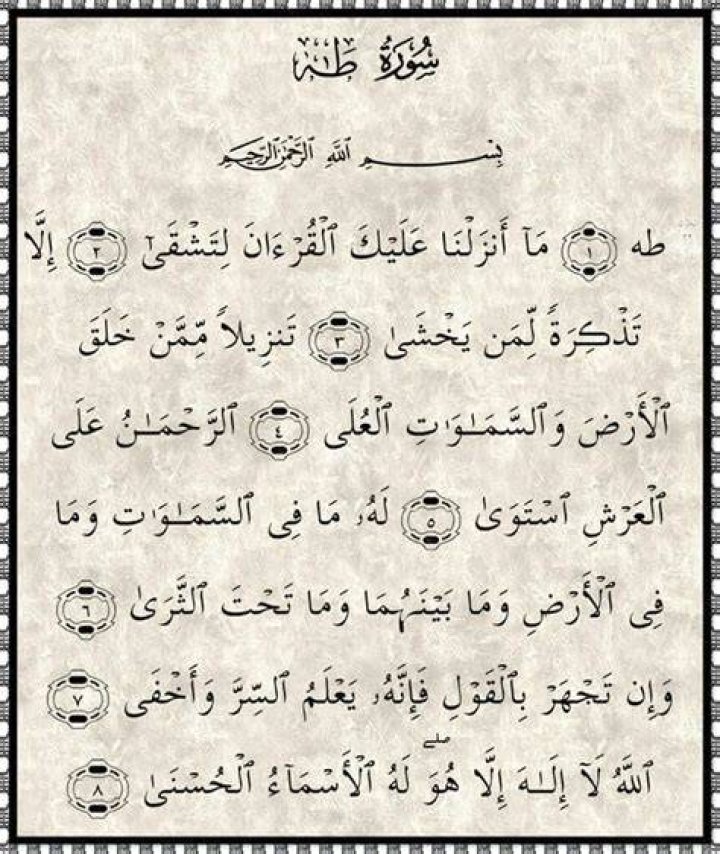 سُورَةُ طَهٰ
بِسْمِ ٱللَّهِ ٱلرَّحْمَٰنِ ٱلرَّحِيمِ
طه ١ مَآ أَنزَلْنَا عَلَيْكَ ٱلْقُرْءَانَ لِتَشْقَىٰٓ ٢ إِلَّا
تَذْكِرَةً لِّمَن يَخْشَىٰ ٣ تَنزِيلًا مِّمَّنْ خَلَقَ
ٱلْأَرْضَ وَٱلسَّمَـٰوَٰتِ ٱلْعُلَى ٤ ٱلرَّحْمَـٰنُ عَلَى
ٱلْعَرْشِ ٱسْتَوَىٰ ٥ لَهُۥ مَا فِى ٱلسَّمَـٰوَٰتِ وَمَا
فِى ٱلْأَرْضِ وَمَا بَيْنَهُمَا وَمَا تَحْتَ ٱلثَّرَىٰ ٦
وَإِن تَجْهَرْ بِٱلْقَوْلِ فَإِنَّهُۥ يَعْلَمُ ٱلسِّرَّ وَأَخْفَى ٧
ٱللَّهُ لَآ إِلَـٰهَ إِلَّا هُوَ ۖ لَهُ ٱلْأَسْمَآءُ ٱلْحُسْنَىٰ ٨